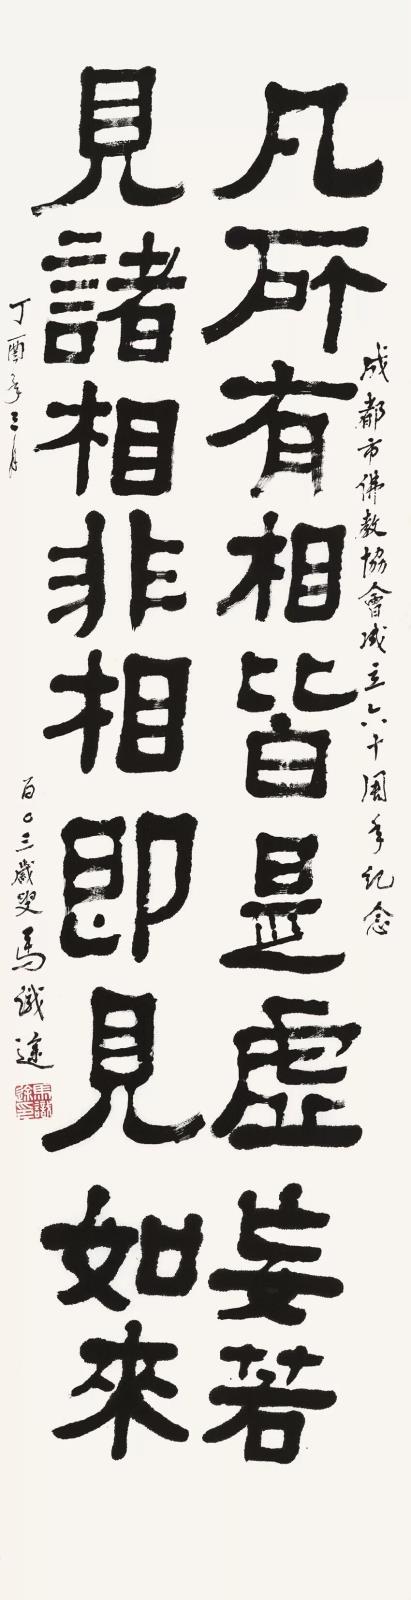 成都市佛教協會成立六十周年紀念
凡所有相皆是虛妄若
見諸相非相即見如來
丁酉年三月
百〇三歲叟馬識途